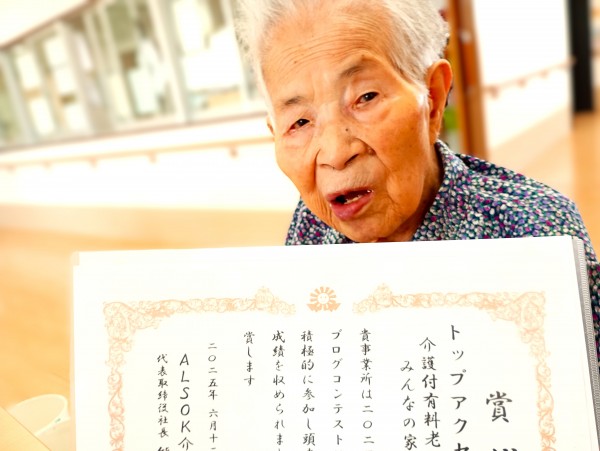 賞
トップアクセ
介護付有料老
みんなの家
貴事業所は二〇二
ブログコンテスト
積極的に参加し頭
成績を収められま
賞します
二〇二五年 六月十二
ALSOK介
代表取締役社長